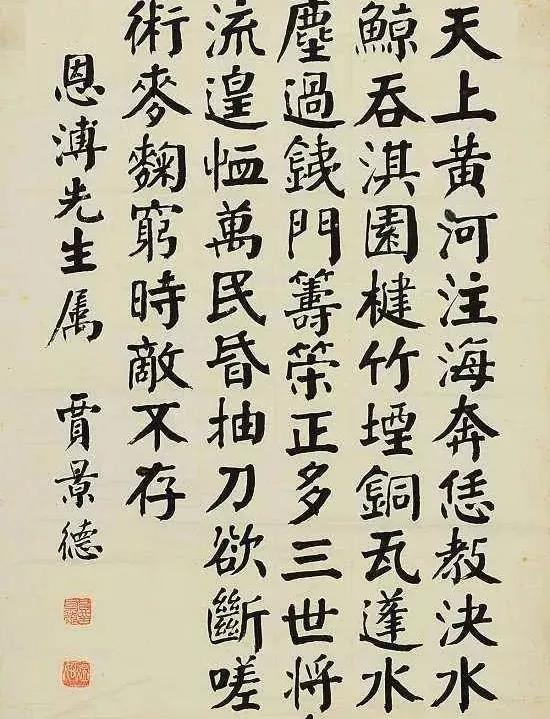 天上黄河注海奔恁教決水
鯨吞淇園楗竹堙銅瓦蓬水
塵過銕門籌策正多三世將
流遑恤萬民昏抽刀欲斷嗟
術麥麴窮時敵不存
恩溥先生属 賈景德